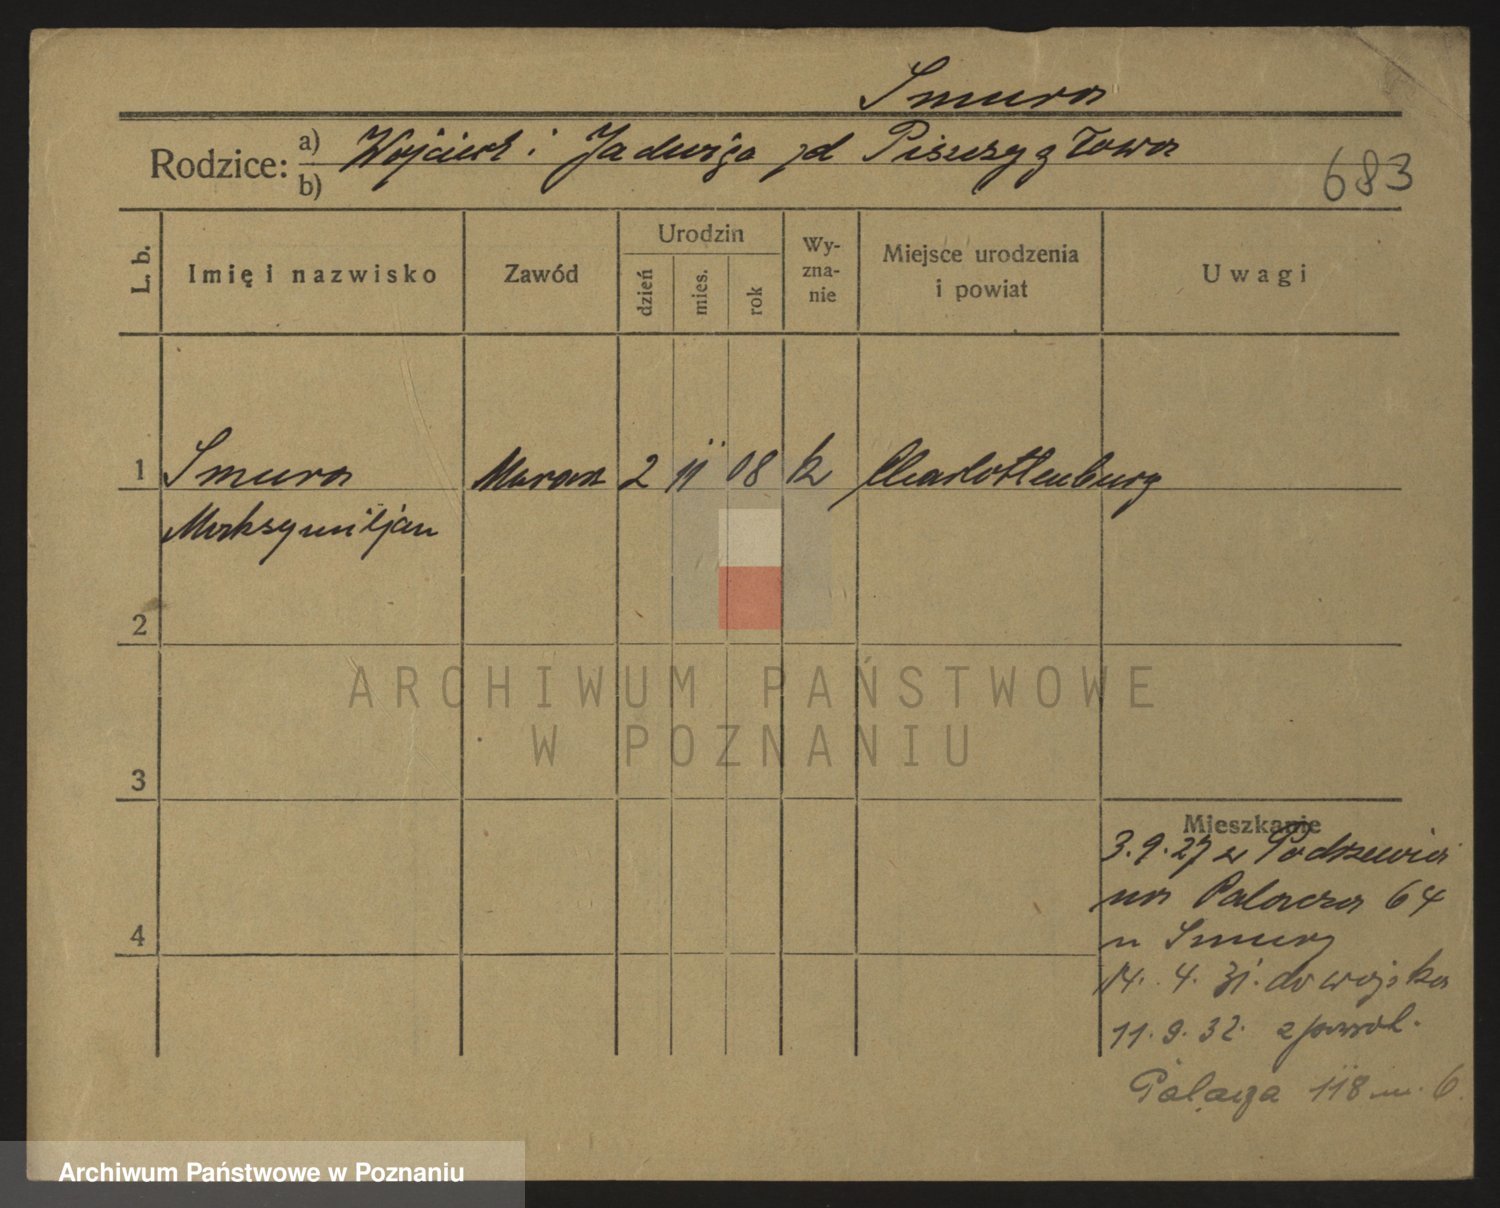 Smura
Rodzice: a) Wojciech i Jadwiga zd
b)
683
L. b.
Imię i nazwisko
Zawód
Urodzin
dzień
mies.
rok
Wy-
zna-
nie
Miejsce urodzenia
i powiat
Uwagi
1 Smura 2 11 08 k Charlottenburg
Maksymiljan
2
3
4
Mieszkanie
3.9.27 z
na Palacza 64
u Smury
14. 4. 31. do wojska
11. 9. 32. z powrót.
Palacza 118 m. 6.
ARCHIWUM PAŃSTWOWE
W POZNANIU
Archiwum Państwowe w Poznaniu